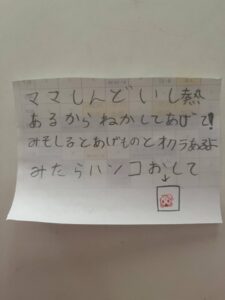 ママしんどいし熱
あるからねかしてあげて!
みそしるとあげものとオクラあるよ
みたらハンコおして
↓